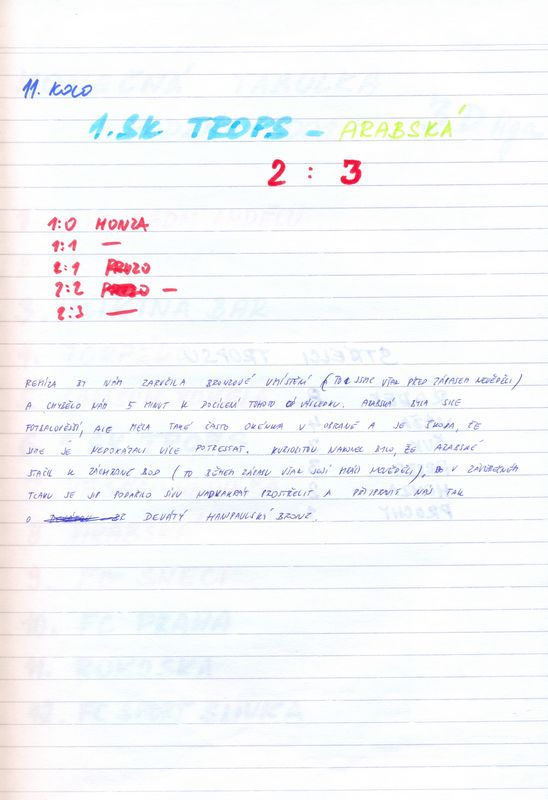 11. KOLO
1. SK TROPS - ARABSKÁ
2 : 3
1:0 HONZA
1:1 —
2:1 PROZO
2:2 —
2:3 —
REMÍZA BY NÁM ZARUČILA BRONZOVÉ UMÍSTĚNÍ (TO JSME VŠAK PŘED ZÁPASEM NEVĚDĚLI)
A CHYBĚLO NÁM 5 MINUT K DOCÍLENÍ TOHOTO VÝSLEDKU. ARABSKÁ BYLA SICE
FOTBALOVĚJŠÍ, ALE MĚLA TAKÉ ČASTO OKÉNKA V OBRANĚ A JE ŠKODA, ŽE
JSME JE NEDOKÁZALI VÍCE POTRESTAT. KURIOZITOU NAKONEC BYLO, ŽE ARABSKÉ
STAČIL K ZÁCHRANĚ BOD (TO BĚHEM ZÁPASU VŠAK JEJÍ HRÁČI NEVĚDĚLI), V ZÁVĚREČNÉM
TLAKU SE JIM PODAŘILO SÍVU NADVAKRÁT PROSTŘELIT A PŘIPRAVIT NÁS TAK
O DEVÁTÝ HANSPAULSKÝ BRONZ.